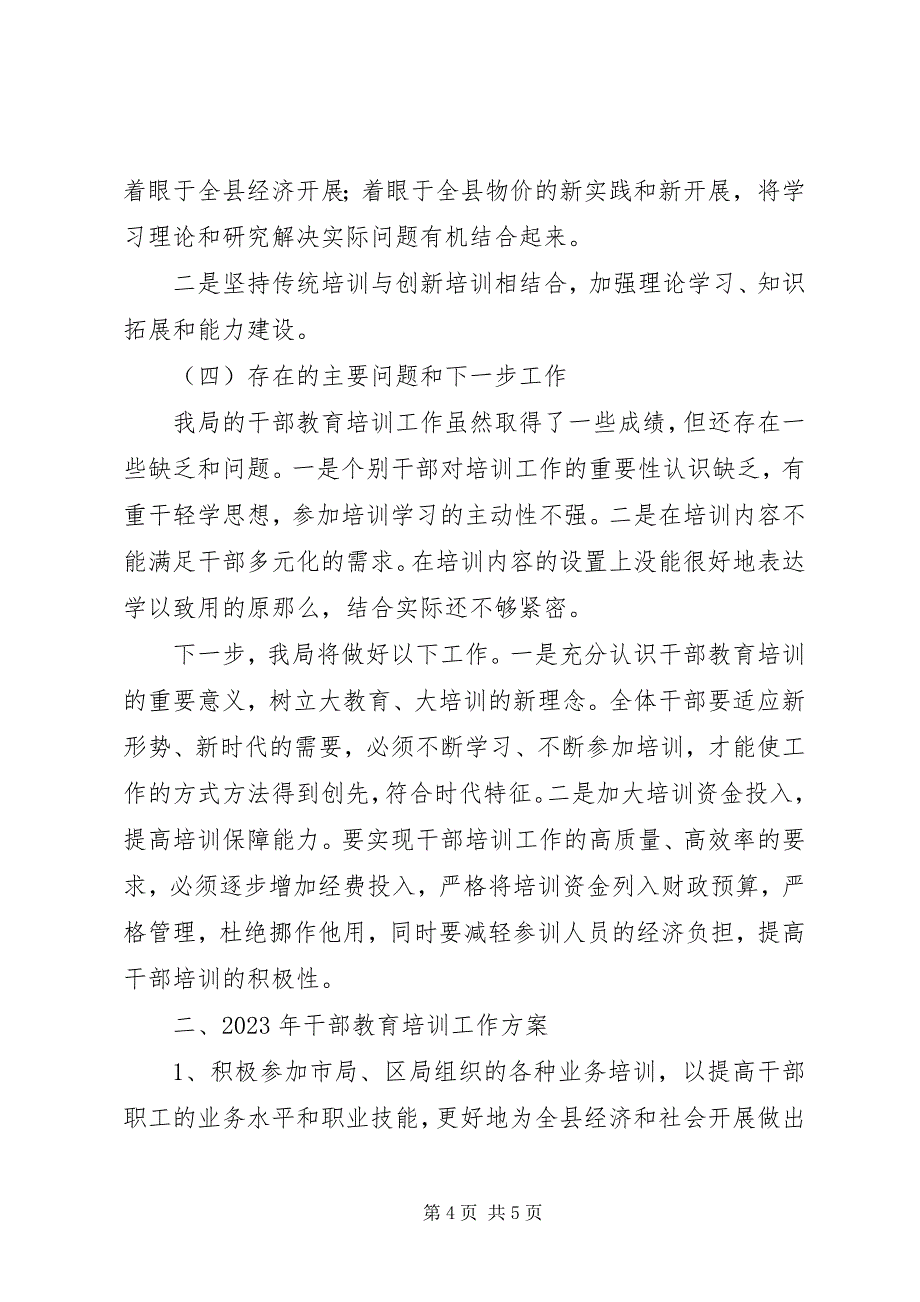 着眼于全县经济开展；着眼于全县物价的新实践和新开展，将学
习理论和研究解决实际问题有机结合起来。
二是坚持传统培训与创新培训相结合，加强理论学习、知识
拓展和能力建设。
（四）存在的主要问题和下一步工作
我局的干部教育培训工作虽然取得了一些成绩，但还存在一
些缺乏和问题。一是个别干部对培训工作的重要性认识缺乏，有
重干轻学思想，参加培训学习的主动性不强。二是在培训内容不
能满足干部多元化的需求。在培训内容的设置上没能很好地表达
学以致用的原那么，结合实际还不够紧密。
下一步，我局将做好以下工作。一是充分认识干部教育培训
的重要意义，树立大教育、大培训的新理念。全体干部要适应新
形势、新时代的需要，必须不断学习、不断参加培训，才能使工
作的方式方法得到创先，符合时代特征。二是加大培训资金投入，
提高培训保障能力。要实现干部培训工作的高质量、高效率的要
求，必须逐步增加经费投入，严格将培训资金列入财政预算，严
格管理，杜绝挪作他用，同时要减轻参训人员的经济负担，提高
干部培训的积极性。
二、2023 年干部教育培训工作方案
1、积极参加市局、区局组织的各种业务培训，以提高干部
职工的业务水平和职业技能，更好地为全县经济和社会开展做出
第 4 页 共 5 页